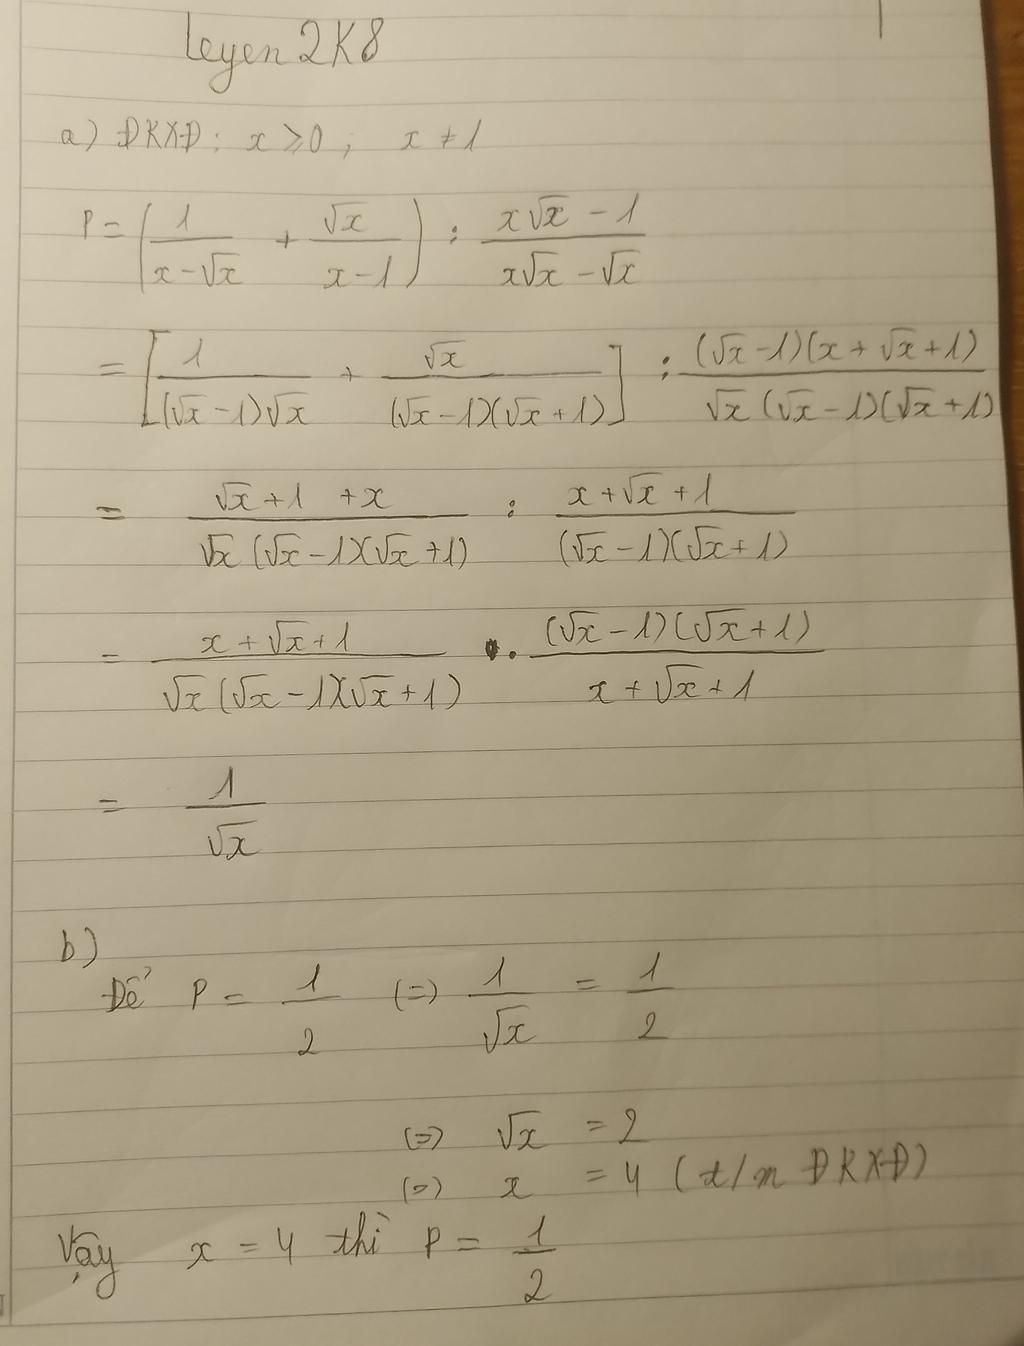 leyen 2K8
a) ĐKXĐ: x ≥ 0 ; x ≠ 1
P = (1/(x-√x) + √x/(x-1)) : (x√x - 1)/(x√x - √x)
= [1/((√x-1)√x) + √x/((√x-1)(√x+1))] : ((√x-1)(x+√x+1))/(√x(√x-1)(√x+1))
= (√x+1+x)/(√x(√x-1)(√x+1)) : (x+√x+1)/((√x-1)(√x+1))
= (x+√x+1)/(√x(√x-1)(√x+1)) . ((√x-1)(√x+1))/(x+√x+1)
= 1/√x
b)
Để P = 1/2 (=) 1/√x = 1/2
(=) √x = 2
(=) x = 4 (t/m ĐKXĐ)
Vậy x = 4 thì P = 1/2